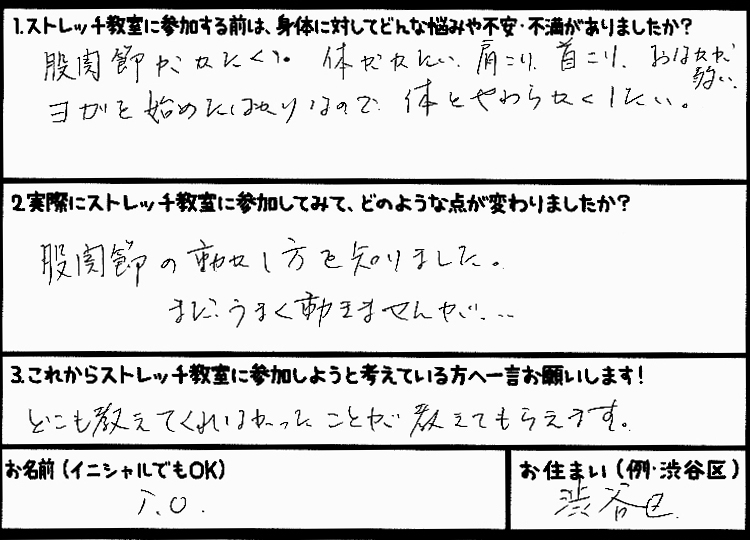 1.ストレッチ教室に参加する前は、身体に対してどんな悩みや不安・不満がありましたか?
股関節がかたい。体がかたい、肩こり、首こり、おなかが弱い、
ヨガを始めたばかりなので、体をやわらかくしたい。
2.実際にストレッチ教室に参加してみて、どのような点が変わりましたか?
股関節の動かし方を知りました。
まだうまく動きませんが...
3.これからストレッチ教室に参加しようと考えている方へ一言お願いします!
どこも教えてくれなかったことが教えてもらえます。
お名前(イニシャルでもOK) お住まい(例・渋谷区)
T.O. 渋谷区